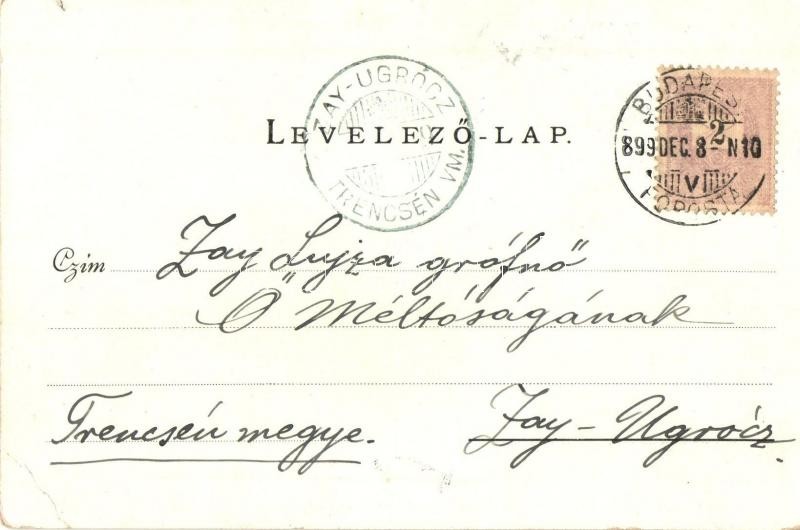 ZAY-UGRÓCZ
TRENCSÉN VM.
LEVELEZŐ-LAP.
BUDAPEST
2
899 DEC. 8 - N10
V
FŐPOSTA
Czím Zay Lujza grófnő
Ő Méltóságának
Trencsén megye. Zay-Ugrócz.